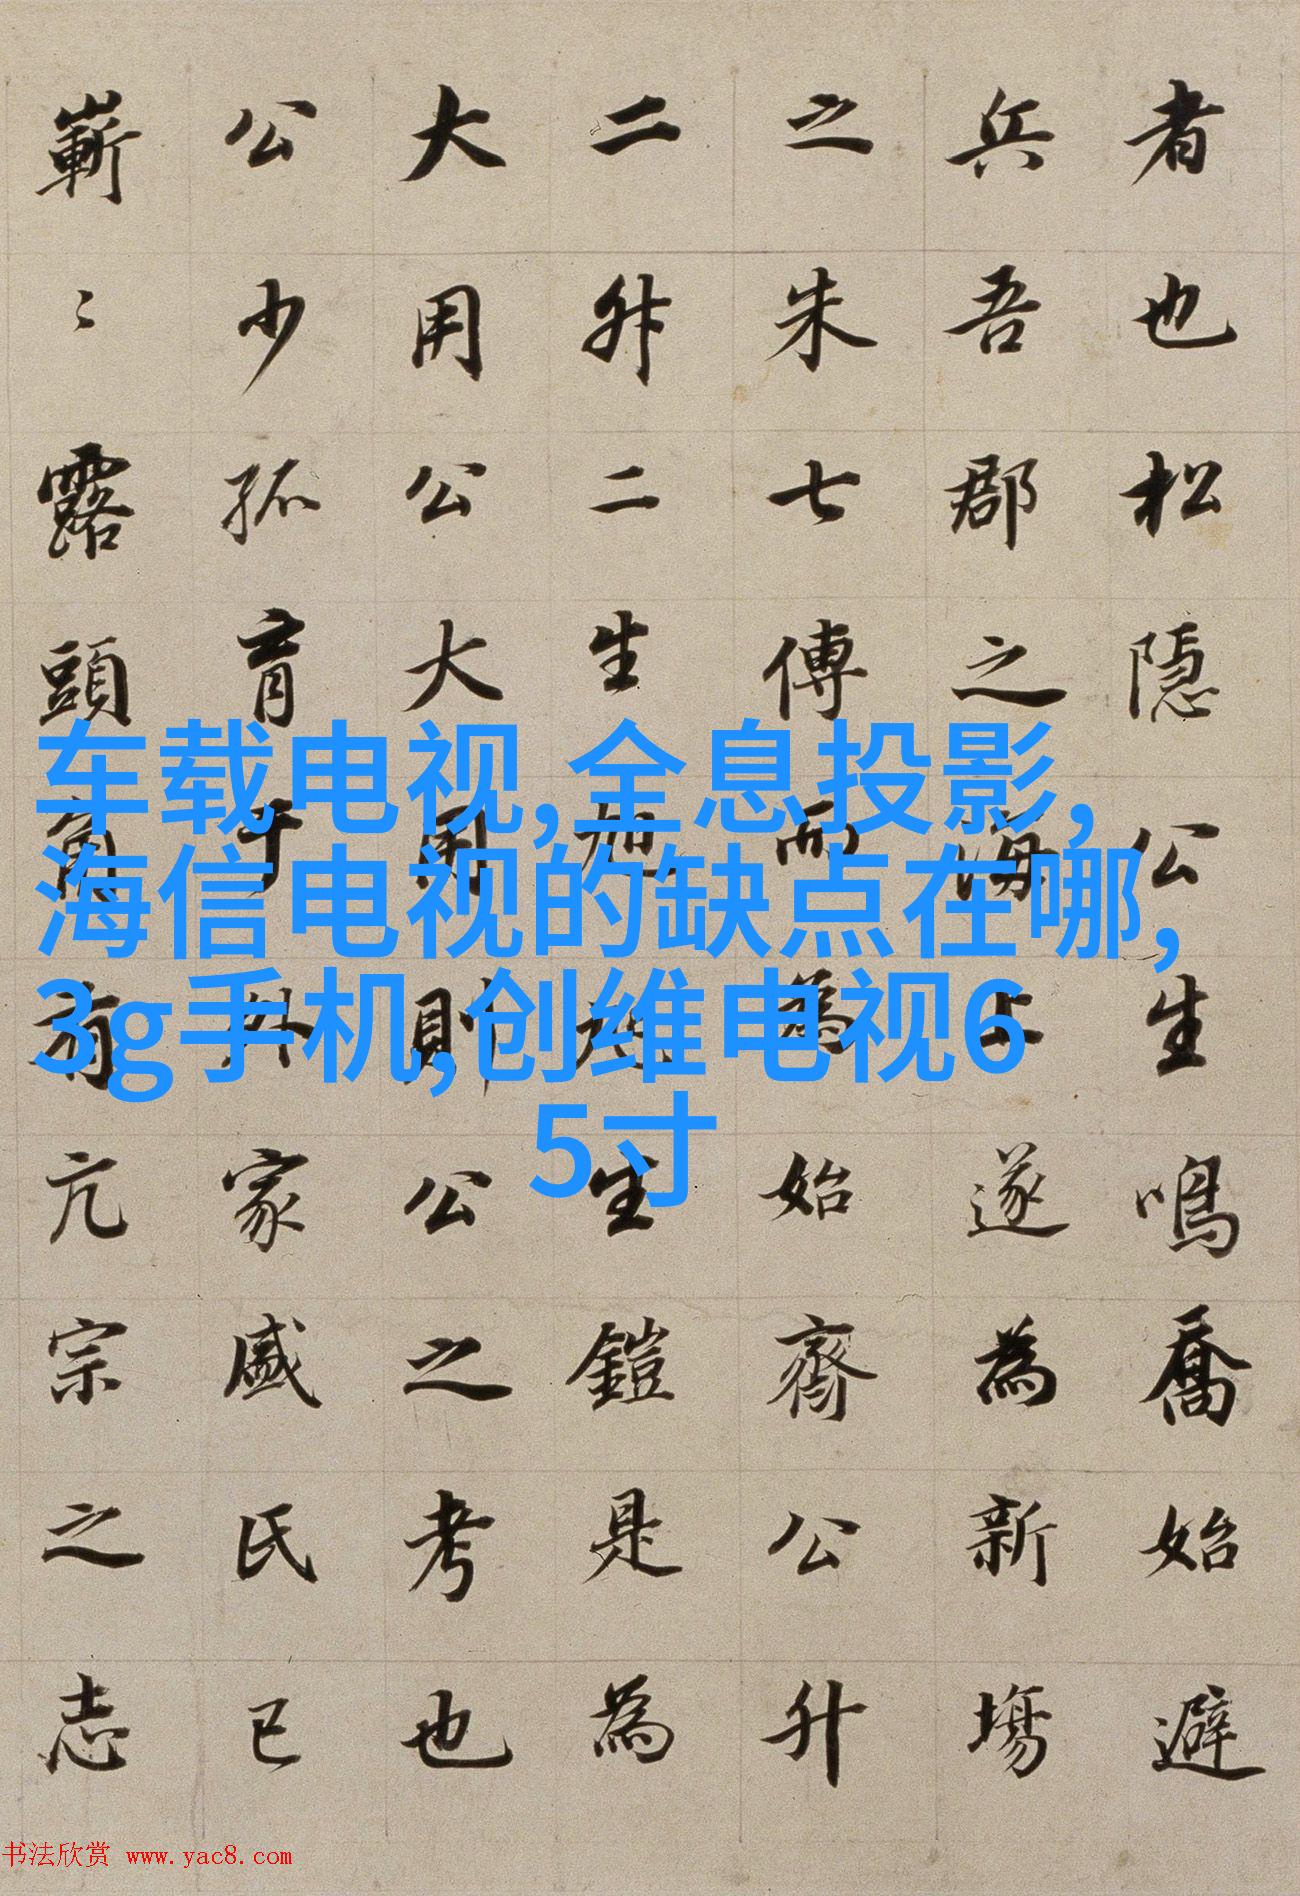 者也松隱公生鳴喬始避
兵吾郡之海上遂為新塲
之朱七傳而為始齊公升
二升二生旭旭生鎧是為
大用公大用則公之考也
公少孤育于外家戚氏已
嶄〻露頭角有亢宗之志
车载电视,全息投影,
海信电视的缺点在哪,
3g手机,创维电视6
5寸
书法欣赏 www.yac8.com